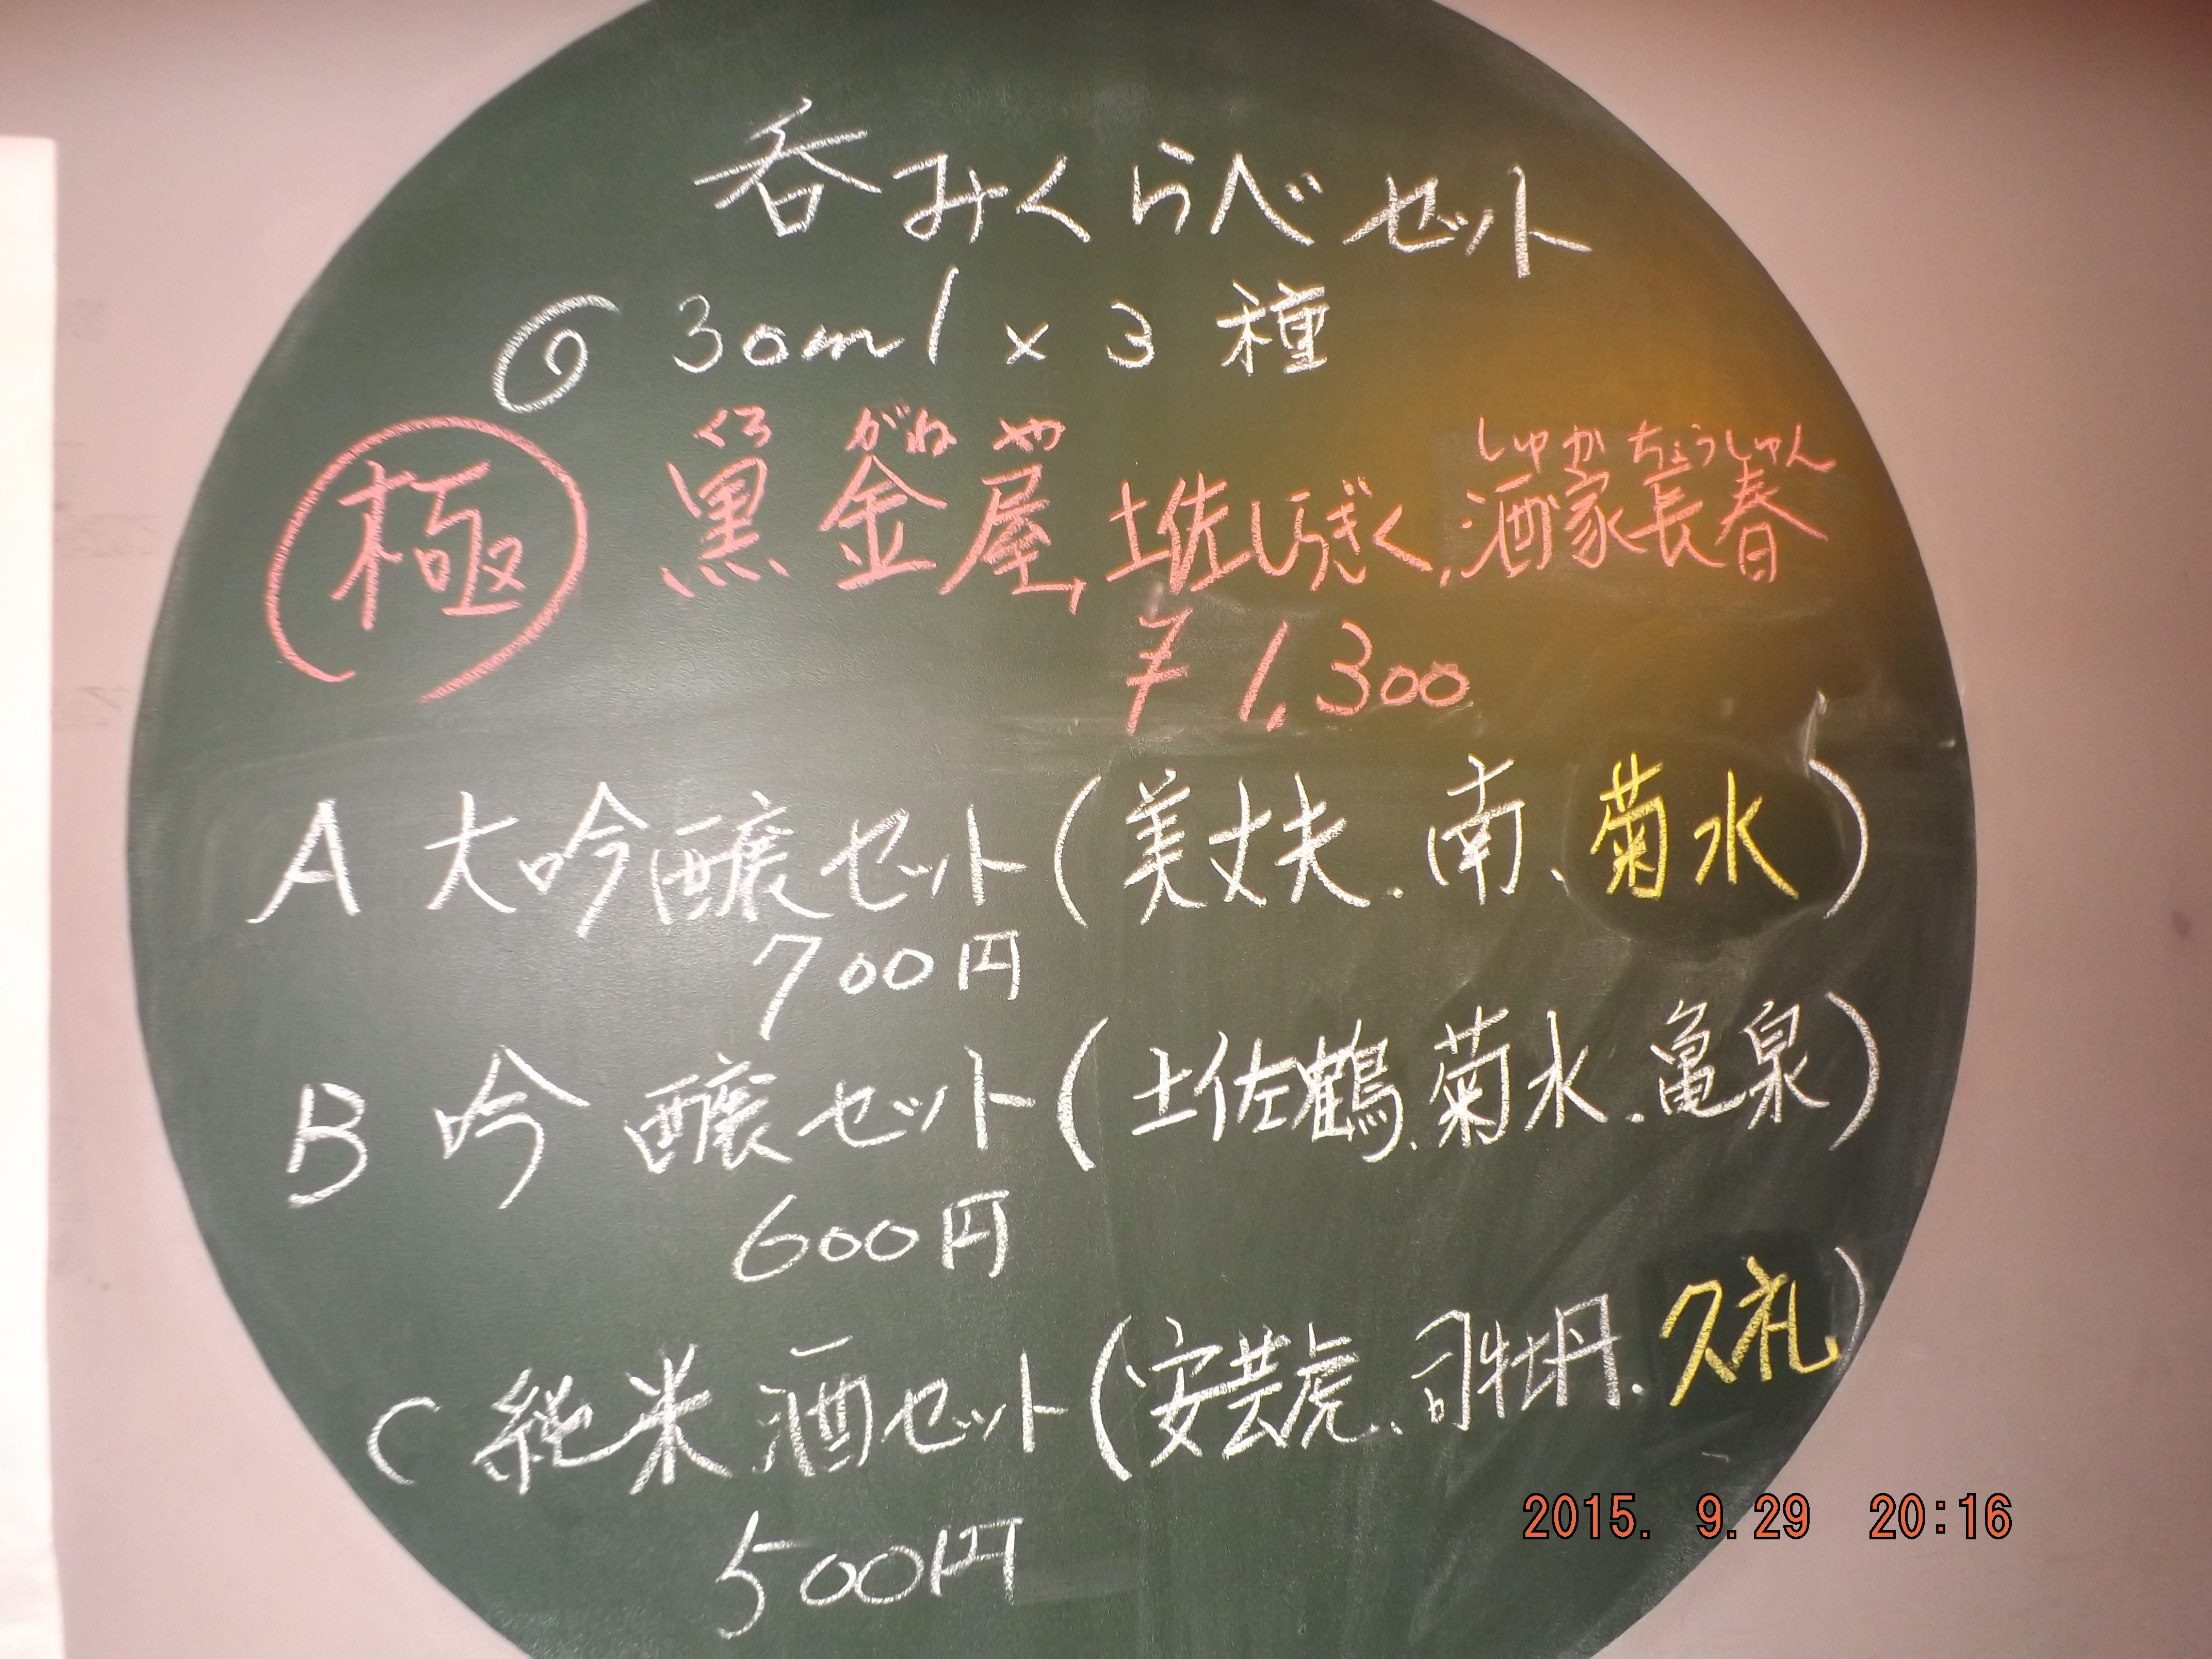 呑みくらべセット
◎ 30ml×3種
くろ がね や しゅか ちょうしゅん
極 黒金屋,土佐しらぎく,酒家長春
¥1,300
A 大吟醸セット(美丈夫.南、菊水)
700円
B 吟醸セット(土佐鶴.菊水.亀泉)
600円
C 純米酒セット(安芸虎.司牡丹.久礼)
500円
2015. 9.29 20:16